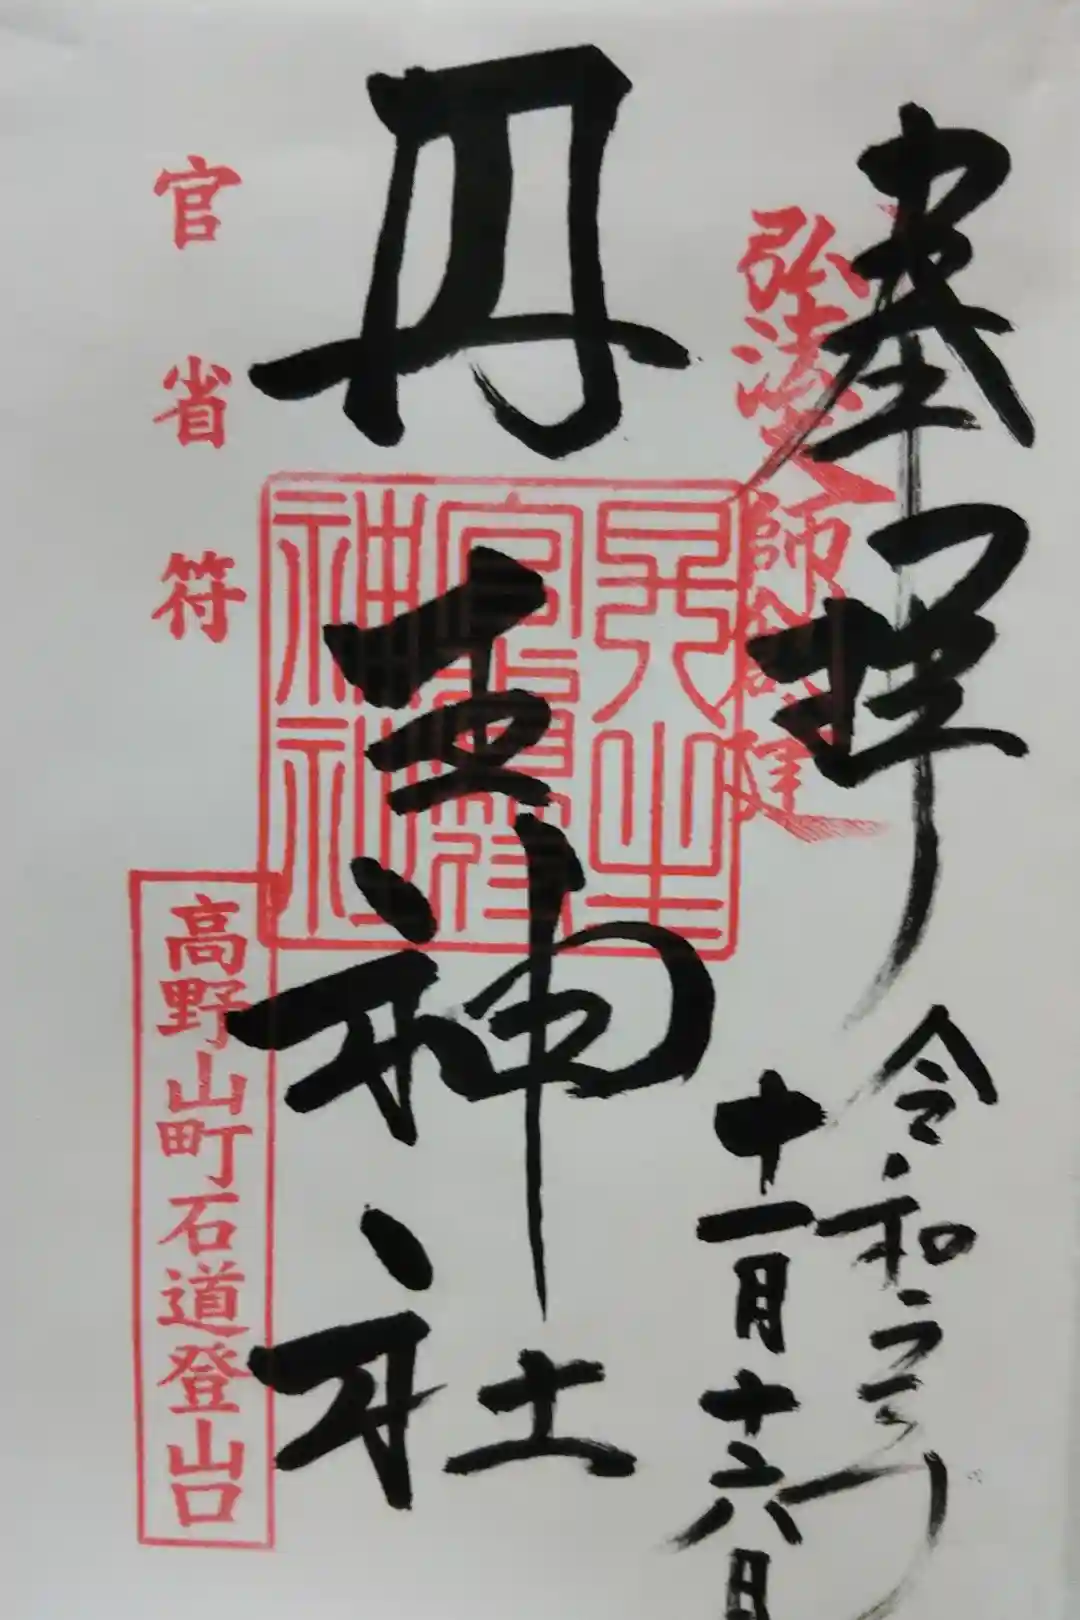 奉拝
弘法大師創建
令和年
十一月十六日
丹生神社
丹生
官省符
神社
官省符
高野山町石道登山口